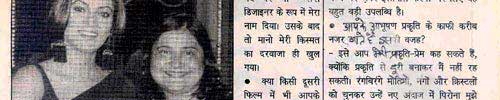 डिजाइनर के रूप में मेरा
नाम दिया। उसके बाद
तो मानो मेरी किस्मत
का दरवाजा ही खुल
गया।
● क्या किसी दूसरी
फिल्म में भी आपके
बहुत बड़ी उपलब्धि है।
● आपके आभूषण प्रकृति के काफी करीब
नजर आते वजह?
- इसे आप मेरा प्रकृति-प्रेम कह सकते हैं,
क्योंकि प्रकृति से दूरी बनाकर मैं नहीं रह
सकती। रंगबिरंगे मोतियों, नगों और क्रिस्टलों
को चुनकर उन्हें नए अंदाज में पिरोना मुझे